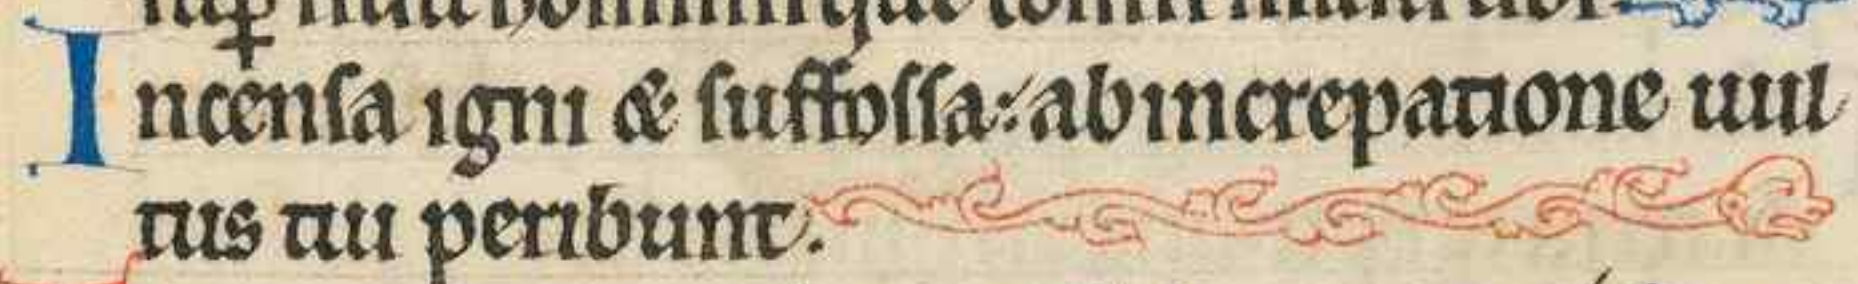 Incenſa igni & ſuffoſſa: ab increpatione uul
tus tui peribunt.